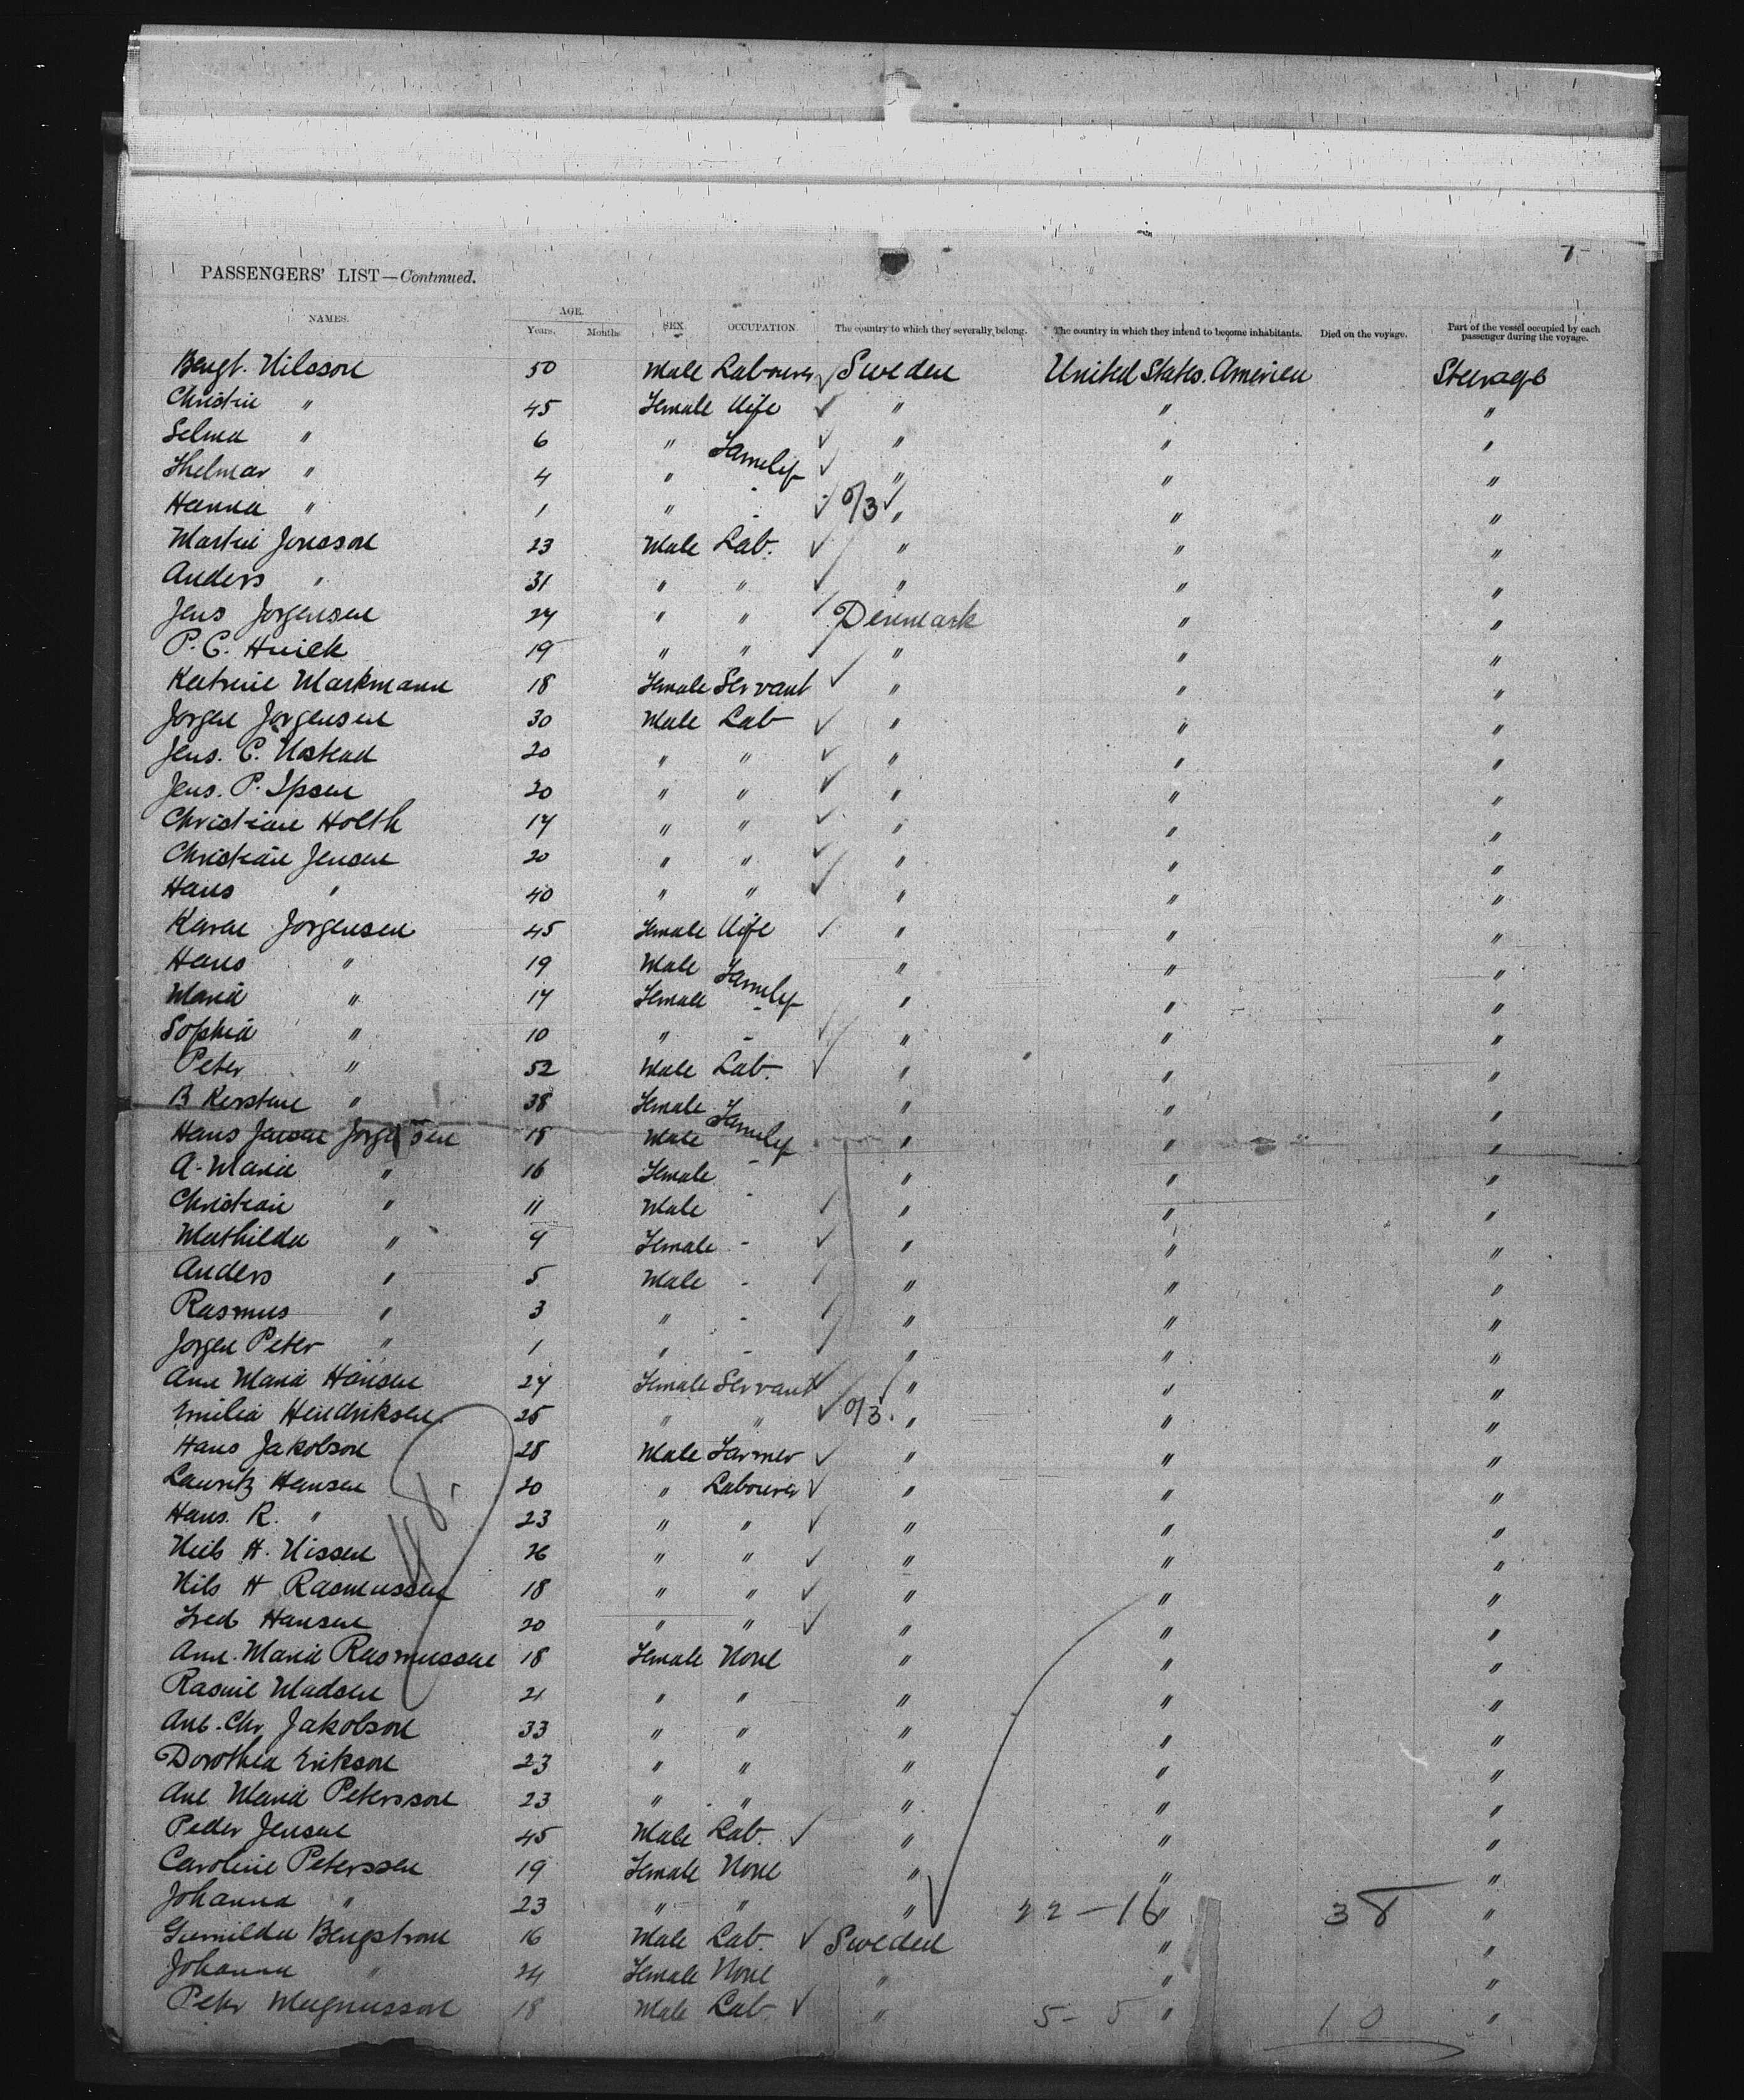 7-
PASSENGERS' LIST—Continued.
NAMES. AGE. Years. Months SEX OCCUPATION. The country to which they severally belong. The country in which they intend to become inhabitants. Died on the voyage. Part of the vessel occupied by each passenger during the voyage.
Bengt. Nilsson 50 Male Labourer Sweden United States. America Steerage
Christin " 45 Female Wife " " "
Selma " 6 " Family " " "
Thelmar " 4 " " " "
Hanna " 1 " - 0/3 " " "
Martin Jonsson 23 Male Lab. " " "
Anders " 31 " " " " "
Jens Jorgensen 27 " " Denmark " "
P. C. 19 " " " " "
Katrine Markmann 18 Female Servant " " "
Jorgen Jorgensen 30 Male Lab " " "
Jens. C. 20 " " " " "
Jens. P. Ipsen 20 " " " " "
Christian Holth 17 " " " " "
Christian Jensen 20 " " " " "
Hans " 40 " " " " "
Karen Jorgensen 45 Female Wife " " "
Hans " 19 Male Family " " "
Maria " 17 Female - " " "
Sophia " 10 " - " " "
Peter " 52 Male Lab. " " "
B Kerstine " 38 Female Family " " "
Hans Jensen Jorgensen 18 Male " " "
A. Maria " 16 Female - " " "
Christian " 11 Male - " " "
Mathilda " 9 Female - " " "
Anders " 5 Male - " " "
Rasmus " 3 " - " " "
Jorgen Peter " 1 " - " " "
Ane Maria Hansen 24 Female Servant " " "
Emilia Hendriksen 25 " " 0/3. " " "
Hans Jakobson 28 Male Farmer " " "
Lauritz Hansen 20 " Labourer " " "
Hans. R. " 23 " " " " "
Neils H. Nissen 26 " " " " "
Nils H Rasmussen 18 " " " " "
Fred Hansen 20 " " " " "
Ane. Maria Rasmussen 18 Female None " " "
Rasmie Madsen 21 " " " " "
Ane. Chr. Jakobson 33 " " " " "
Dorothea Erikson 23 " " " " "
Ane Maria Petersson 23 " " " " "
Peder Jensen 45 Male Lab. " " "
Caroline Peterssen 19 Female None " " "
Johanna " 23 " " " 22-16 " 38 "
Bengstrom 16 Male Lab. Sweden " "
Johanna " 24 Female None " " "
Peter Magnusson 18 Male Lab " 5-5 " 10 "
48.